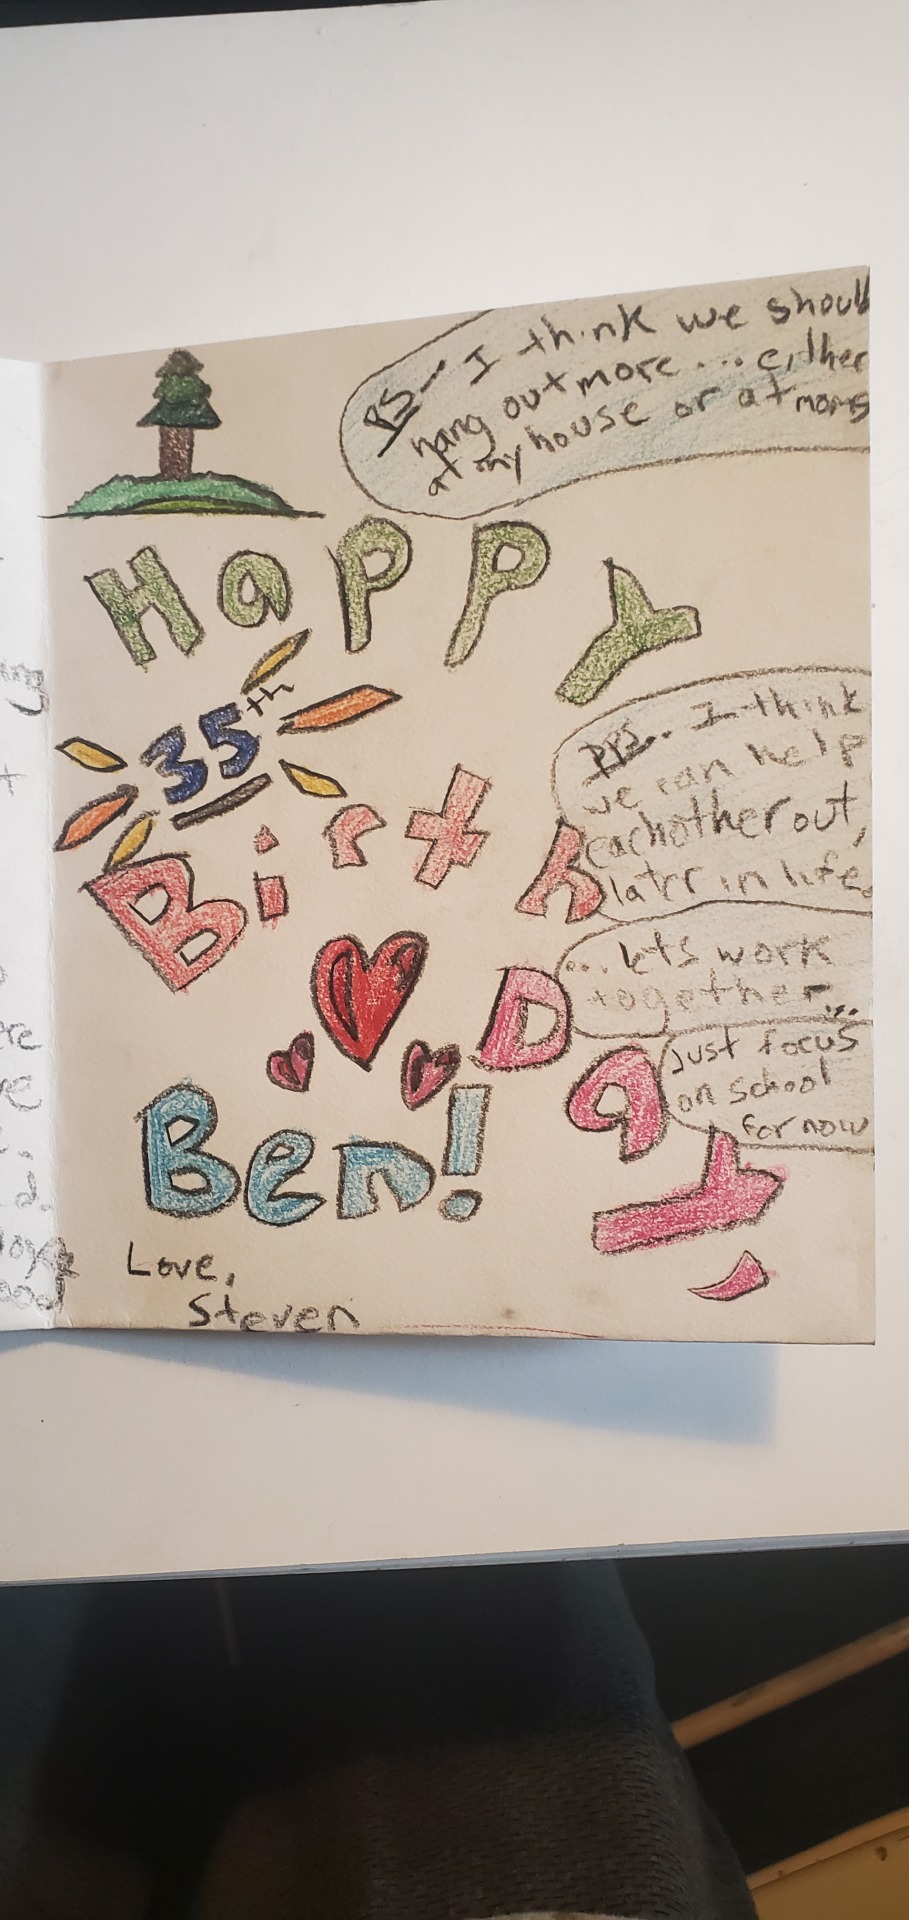 PS... I think we should
hang out more.... either
at my house or at moms
Happy
35th
Birthday
Ben!
PPS... I think
we can help
eachother out,
later in life.
... lets work
together...
just focus
on school
for now
Love,
Steven